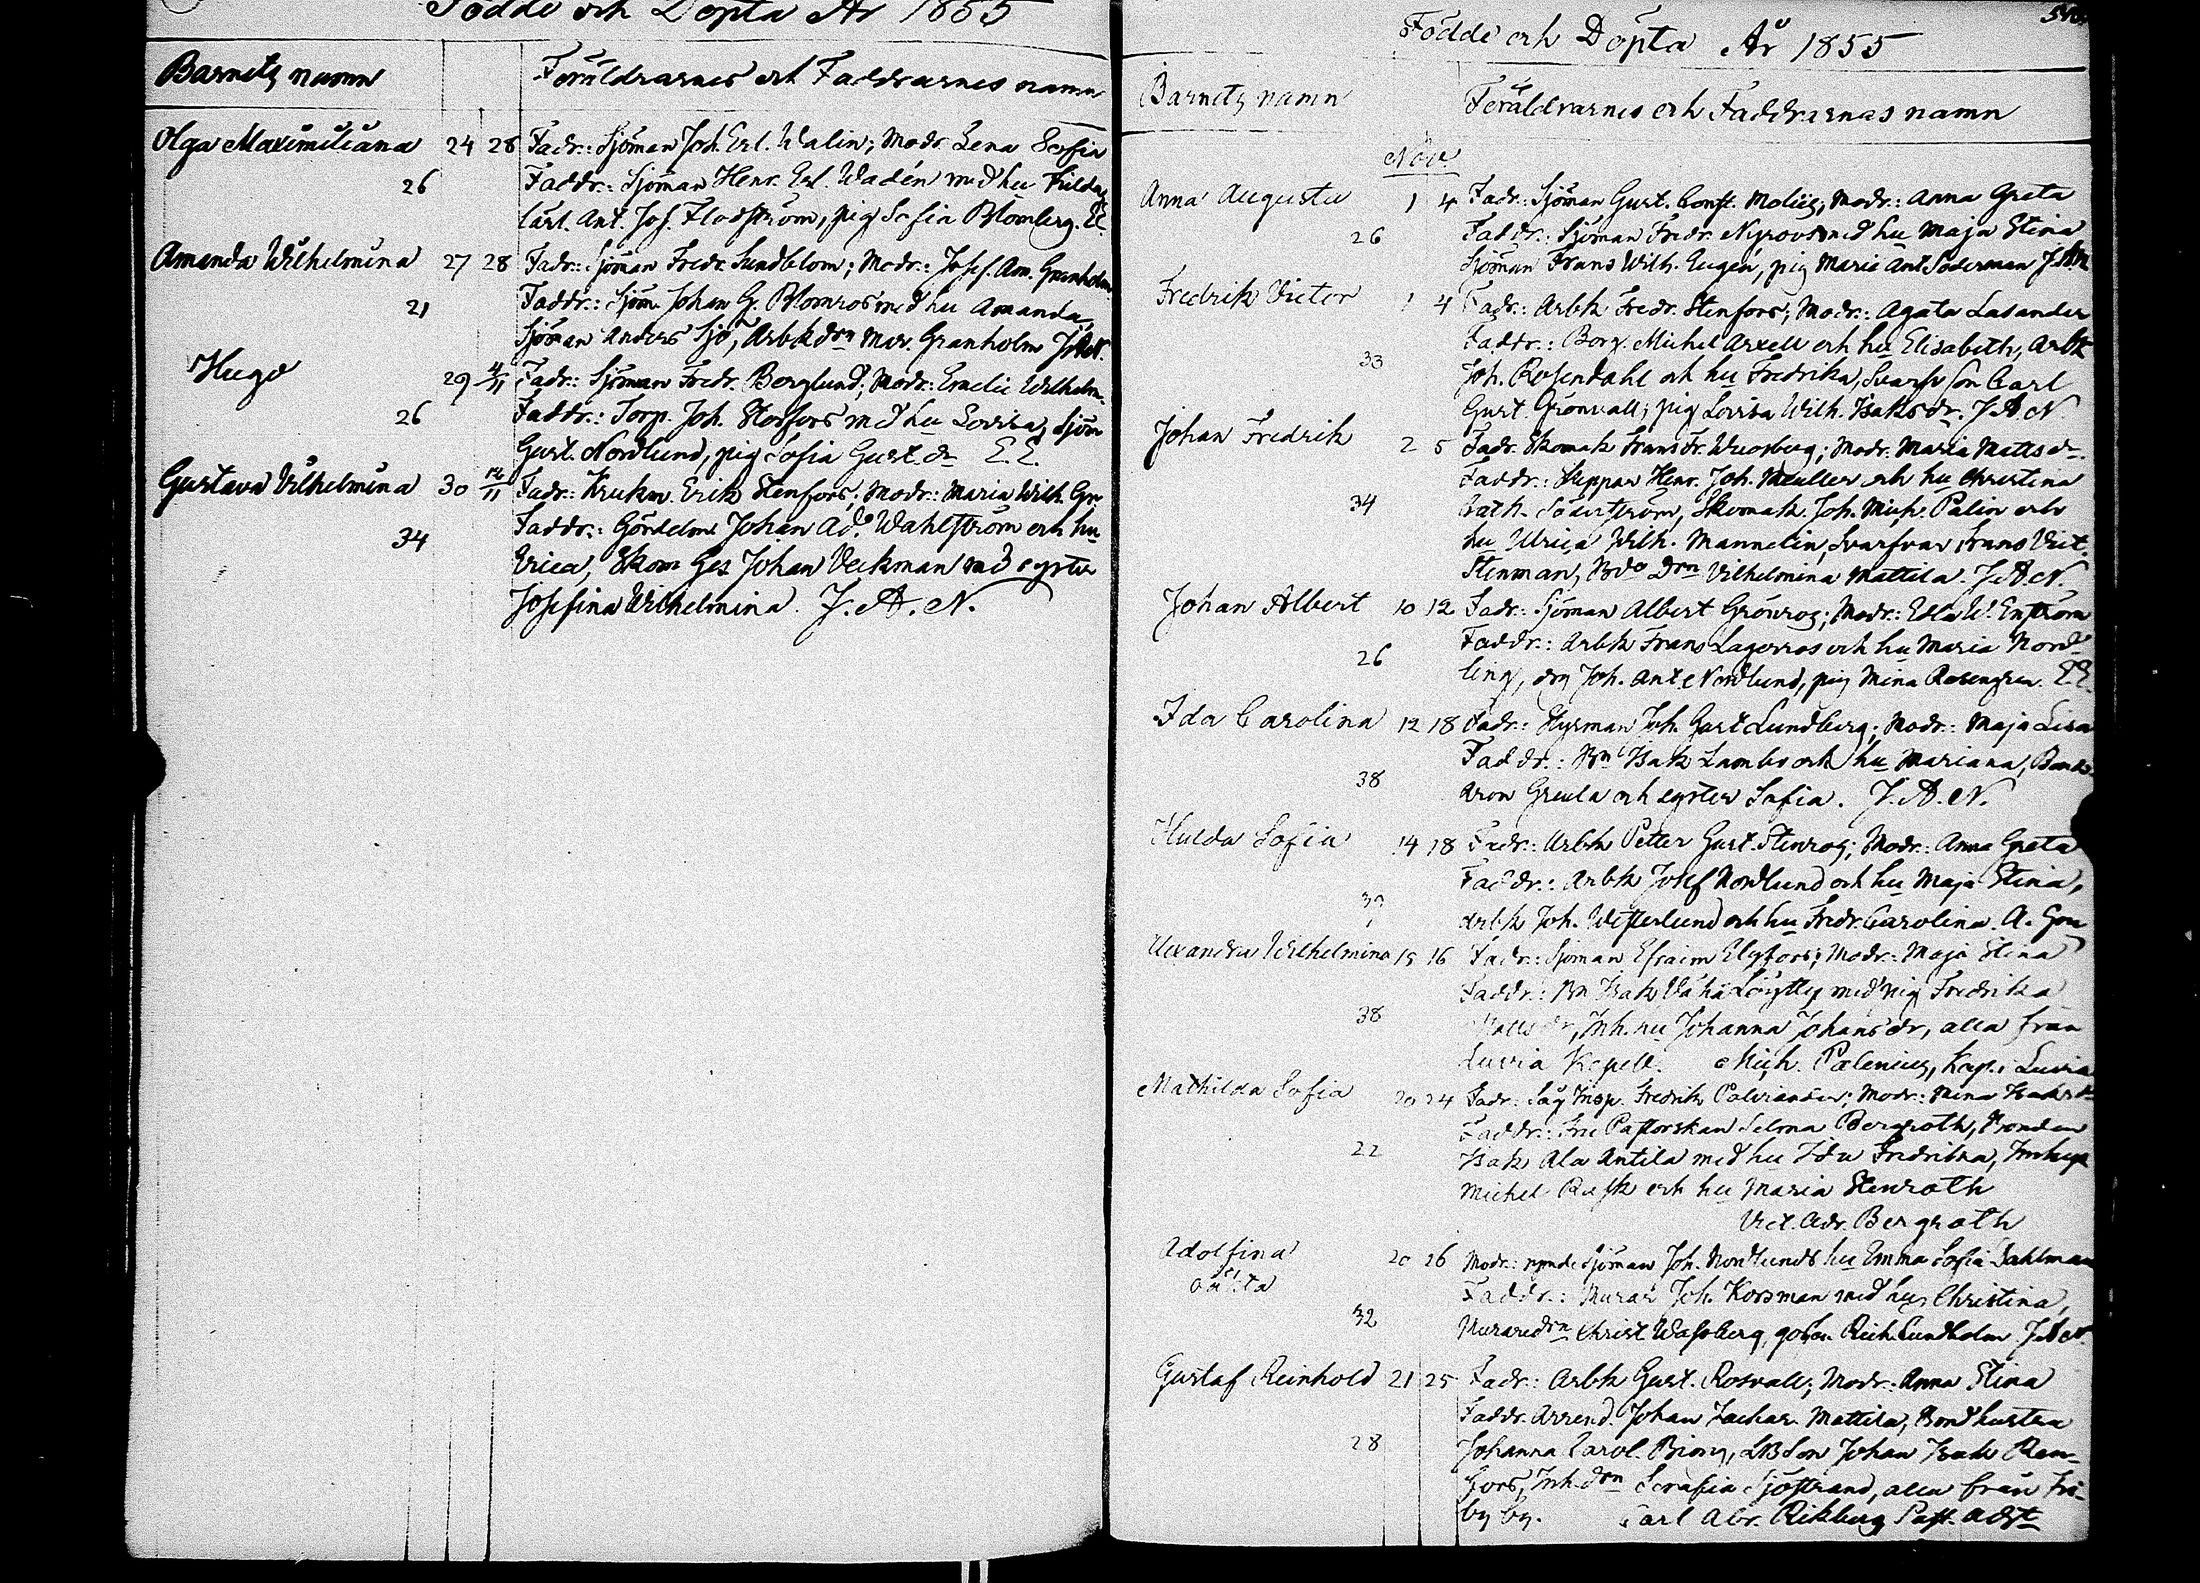 Födde och Döpta År 1855
Barnets namn
Föräldrarnes och Faddrarnes namn
Olga Maximiliana 24 28 Fadr.: Sjöman Joh. Erl. Walin; Modr. Lena Sofia
26 Faddr.: Sjöman Henr. Erl. Wadén med hu Hilda,
lärl. Ant. Jos. Flodström, pig Sofia Blomberg. E.E.
Amanda Wilhelmina 27 28 Fadr.: Sjöman Fredr. Sundblom; Modr.: Josef. Am. Granholm
21 Faddr.: Sjöm Johan G. Blomros med hu Amanda,
Sjöman Anders Sjö, Arbk drn Mar. Granholm J.A.N.
Hugo 29 4/11 Fadr.: Sjöman Fredr. Berglund; Modr.: Emelie Wilhelm.
26 Faddr.: Torp. Joh. Storfors med hu Lovisa, Sjöm
Gust. Nordlund, pig Sofia Gust.dr E.E.
Gustava Vilhelmina 30 12/11 Fadr.: Krukm. Erik Stenfors; Modr.: Maria Wilh.
34 Faddr.: Gördelm. Johan Ad. Wahlström och hu
Erica, Skom Ges Johan Veckman med syster
Josefina Wilhelmina. J.A.N.
Födde och Döpta År 1855
Barnets namn
Föräldrarnes och Faddrarnas namn
Nov.
Anna Augusta 1 4 Fadr.: Sjöman Gust. Const. Moliis; Modr.: Anna Greta
26 Faddr.: Sjöman Fredr. Nyroos med hu Maja Stina
Sjöman Frans Wilh. Eugén, pig Maria Ant Söderman J.A.N.
Fredrik Victor 1 4 Fadr.: Arbk Fredr. Stenfors; Modr.: Agata Lasander
Faddr.: Borg. Michel Axell och hu Elisabeth, Arbk
33 Joh. Rosendahl och hu Fredrika, Svarfv son Carl
Gust. Grönvall; pig Lovisa Wilh. Isaksdr. J.A.N.
Johan Fredrik 2 5 Fadr. Skomak Frans Fr. Widsberg; Modr. Maria Mattsdr.
Faddr.: Skeppar Henr. Joh. Muller och hu Christina
34 Cath. Söderström, Skomak. Joh. Mich. Palin och
hu Ulrica Wilh. Mannelin, Svarfvar Frans Vict.
Stenman, Bdo Drn Vilhelmina Mattila. J.A.N.
Johan Albert 10 12 Fadr.: Sjöman Albert Grönros; Modr.: Edla W. Enström
26 Faddr.: Arbk Frans Lagerros och hu Maria Nord-
ling, drg Joh. Ant. Nordlund, pig Mina Rosengren. E.E.
Ida Carolina 12 18 Fadr.: Styrman Joh. Gust Lundberg; Modr.: Maja Lisa
Faddr.: Bn Isak Lambi och hu Mariana, Bonde
38 Aron Greula och syster Sofia. J.A.N.
Hulda Sofia 14 18 Fadr.: Arbk Petter Gust. Stenros; Modr.: Anna Greta
Faddr.: Arbk Josef Nordlund och hu Maja Stina,
Arbk Joh. Westerlund och hu Fredr. Carolina. A.
Alexandra Wilhelmina 15 16 Fadr.: Sjöman Efraim Elgfors; Modr.: Maja Stina
Faddr.: Bn Isak Vähä Löytty med pig Fredrika
38 Mattsdr, Inh. hu Johanna Johansdr, alla från
Luvia Kapell. Mich. Polenius, Kap. i Luvia
Mathilda Sofia 20 24 Fadr.: Såg Insp. Fredrik Palviander; Modr.: Mina Isaksdr
Faddr.: Fru Pastorskan Selma Bergroth, Bonden
22 Isak Ala Antila med hu Ida Fredrika,
Michel Rusk och hu Maria Stenroth
Vict. Adr. Bergroth
Adolfina 20 26 Modr.: rymde Sjöman Joh. Nordlunds hu Emma Sofia Dahlman
oäkta Faddr.: Murar Joh. Korsman med hu Christina,
32 Muraredrn Christ Wassberg, Rich. Lundholm. J.A.N.
Gustaf Reinhold 21 25 Fadr.: Arbk Gust. Rosvall; Modr.: Anna Stina
Faddr. Arrend. Johan Zachar. Mattila, Bondhustru
28 Johanna Carol. Björn, LBson Johan Isak Ren-
fors, Inh.drn Serafia Sjöstrand, alla från Fri-
by by. Carl Abr. Rikberg Past. Adst